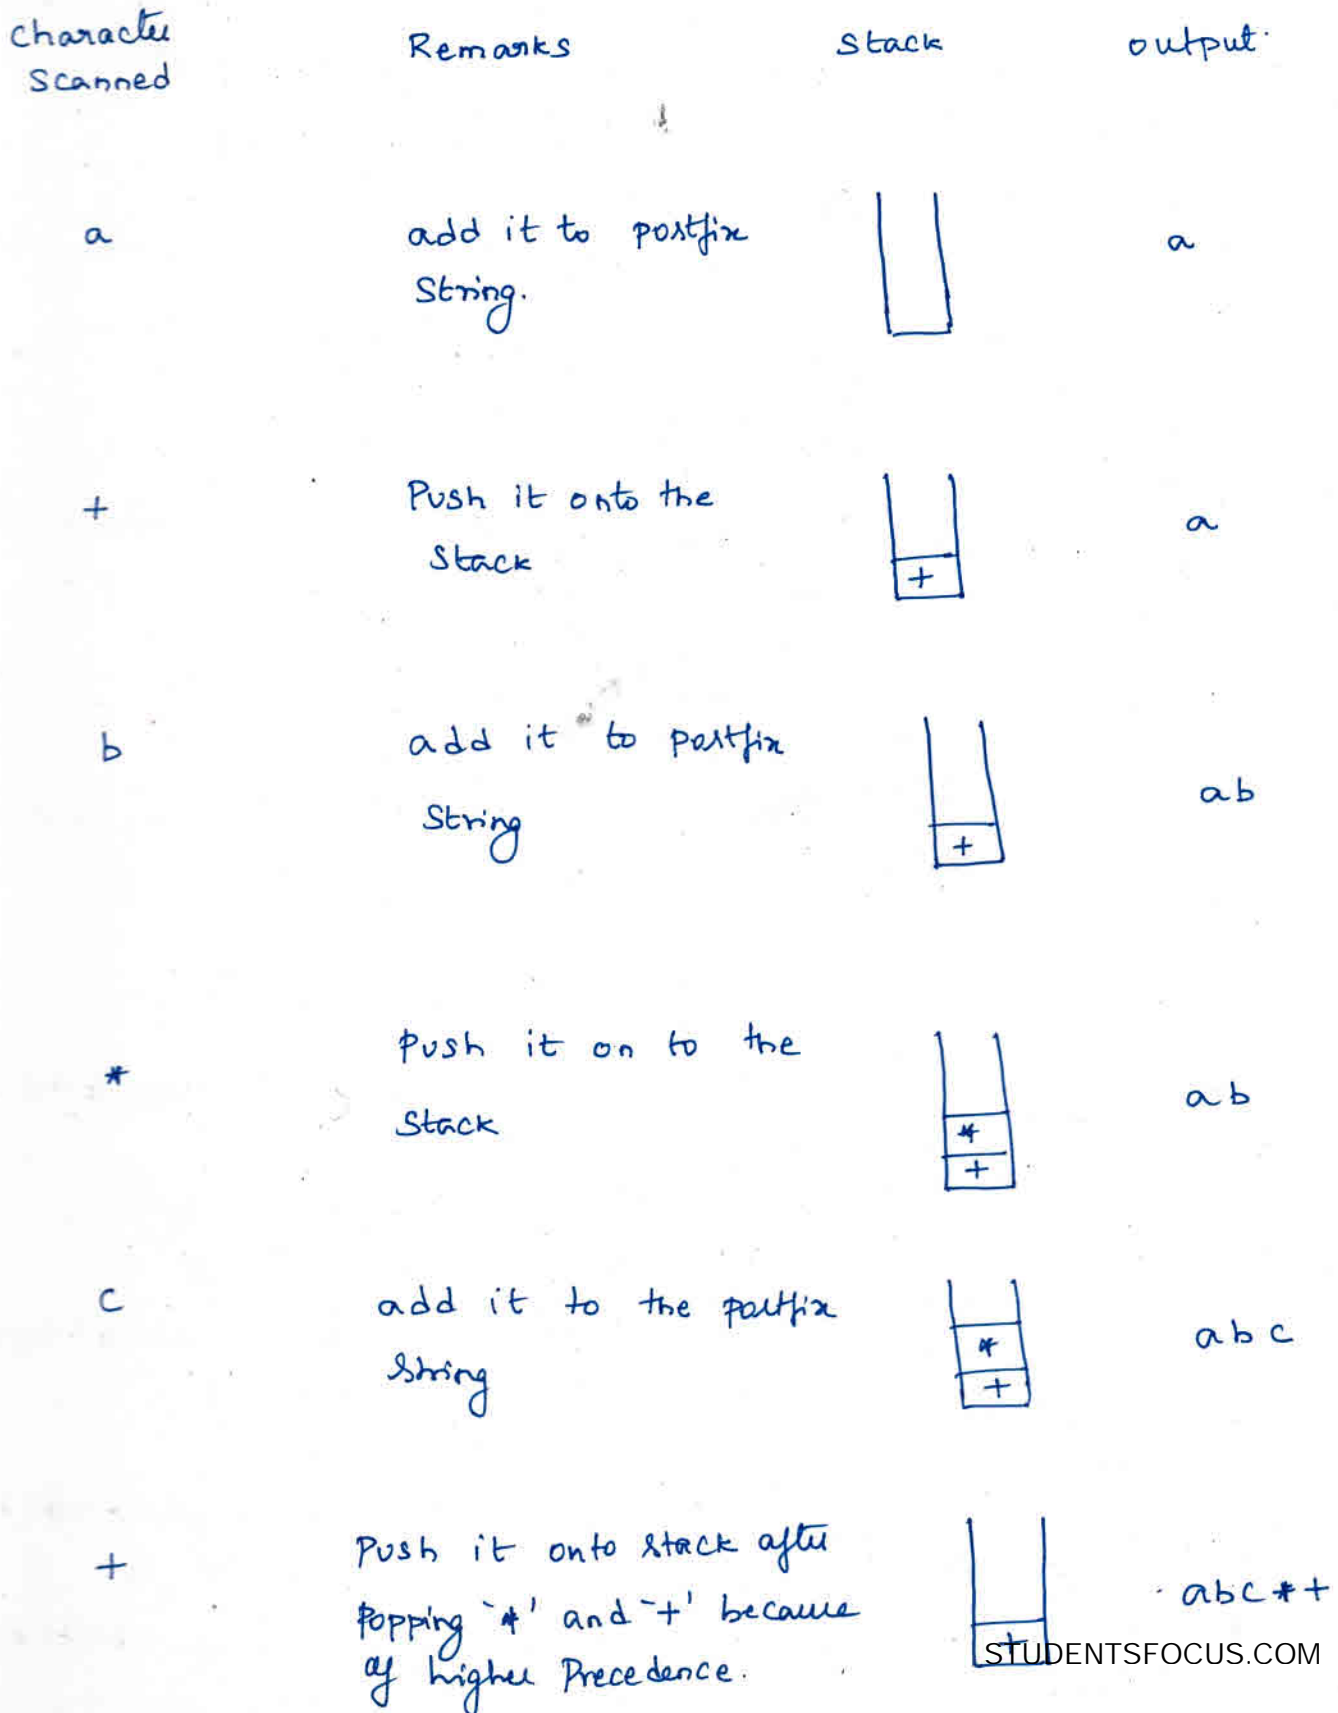 Character Remarks Stack output.
Scanned
a add it to postfix a
String.
+ Push it onto the a
Stack +
b add it to postfix ab
String +
* Push it on to the ab
Stack *
+
c add it to the postfix abc
String *
+
+ Push it onto stack after abc*+
Popping `*' and `+' because +
of higher Precedence.
STUDENTSFOCUS.COM